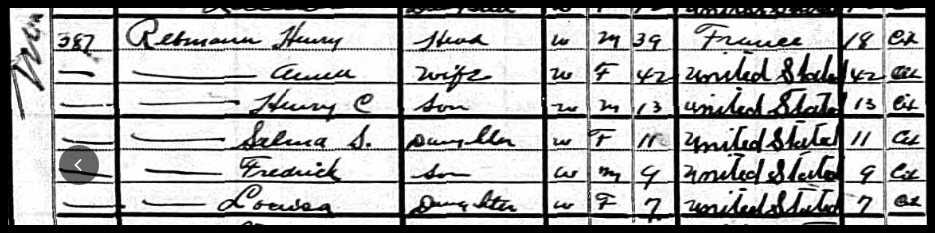 387 Rebmann Henry Head W M 39 France 18 Cit
— — Anna Wife W F 42 United States 42 Cit
— — Henry C Son W M 13 United States 13 Cit
— — Salma S. Daughter W F 11 United States 11 Cit
— — Fredrick Son W M 9 United States 9 Cit
— — Louisa Daughter W F 7 United States 7 Cit